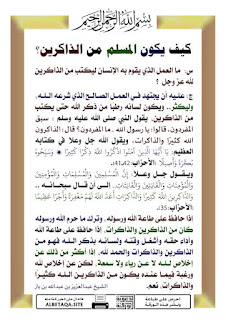 بسم الله الرحمن الرحيم
كيف يكون المسلم من الذاكرين؟
س: ما العمل الذي يقوم به الإنسان ليكتب من الذاكرين
لله عز وجل ؟
ج: عليه أن يجتهد في العمل الصالح الذي شرعه الله،
ويكثر، ويكون لسانه رطبا من ذكر الله حتى يكتب
من الذاكرين، يقول النبي صلى الله عليه وسلم : سبق
المفردون، قالوا: يا رسول الله .. ما المفردون؟ قال: الذاكرون
الله كثيرًا والذاكرات، ويقول الله جل وعلا في كتابه
العظيم: يَا أَيُّهَا الَّذِينَ آمَنُوا اذْكُرُوا اللَّهَ ذِكْرًا كَثِيرًا ۞ وَسَبِّحُوهُ
بُكْرَةً وَأَصِيلًا الأحزاب:41،42،
ويقول جل وعلا: إِنَّ الْمُسْلِمِينَ وَالْمُسْلِمَاتِ وَالْمُؤْمِنِينَ
وَالْمُؤْمِنَاتِ .. إلى أن قال سبحانه ..
وَالذَّاكِرِينَ اللَّهَ كَثِيرًا وَالذَّاكِرَاتِ أَعَدَّ اللَّهُ لَهُمْ مَغْفِرَةً وَأَجْرًا عَظِيمًا
الأحزاب:35
إذا حافظ على طاعة الله ورسوله، وترك ما حرم الله ورسوله
كان من الذاكرين والذاكرات، إذا حافظ على طاعة الله
وأداء حقه وأشغل وقته ولسانه بذكر الله فهو من
الذاكرين والذاكرات والحمد لله، إذا أكثر من ذلك عن
إخلاص لله لا عن رياء ولا سمعة، لكن عن إخلاص لله
ورغبة فيما عنده يكون من الذاكرين الله كثيرًا
والذاكرات، نعم.
الشيخ عبدالعزيز بن عبدالله بن باز
ALBETAQA.SITE